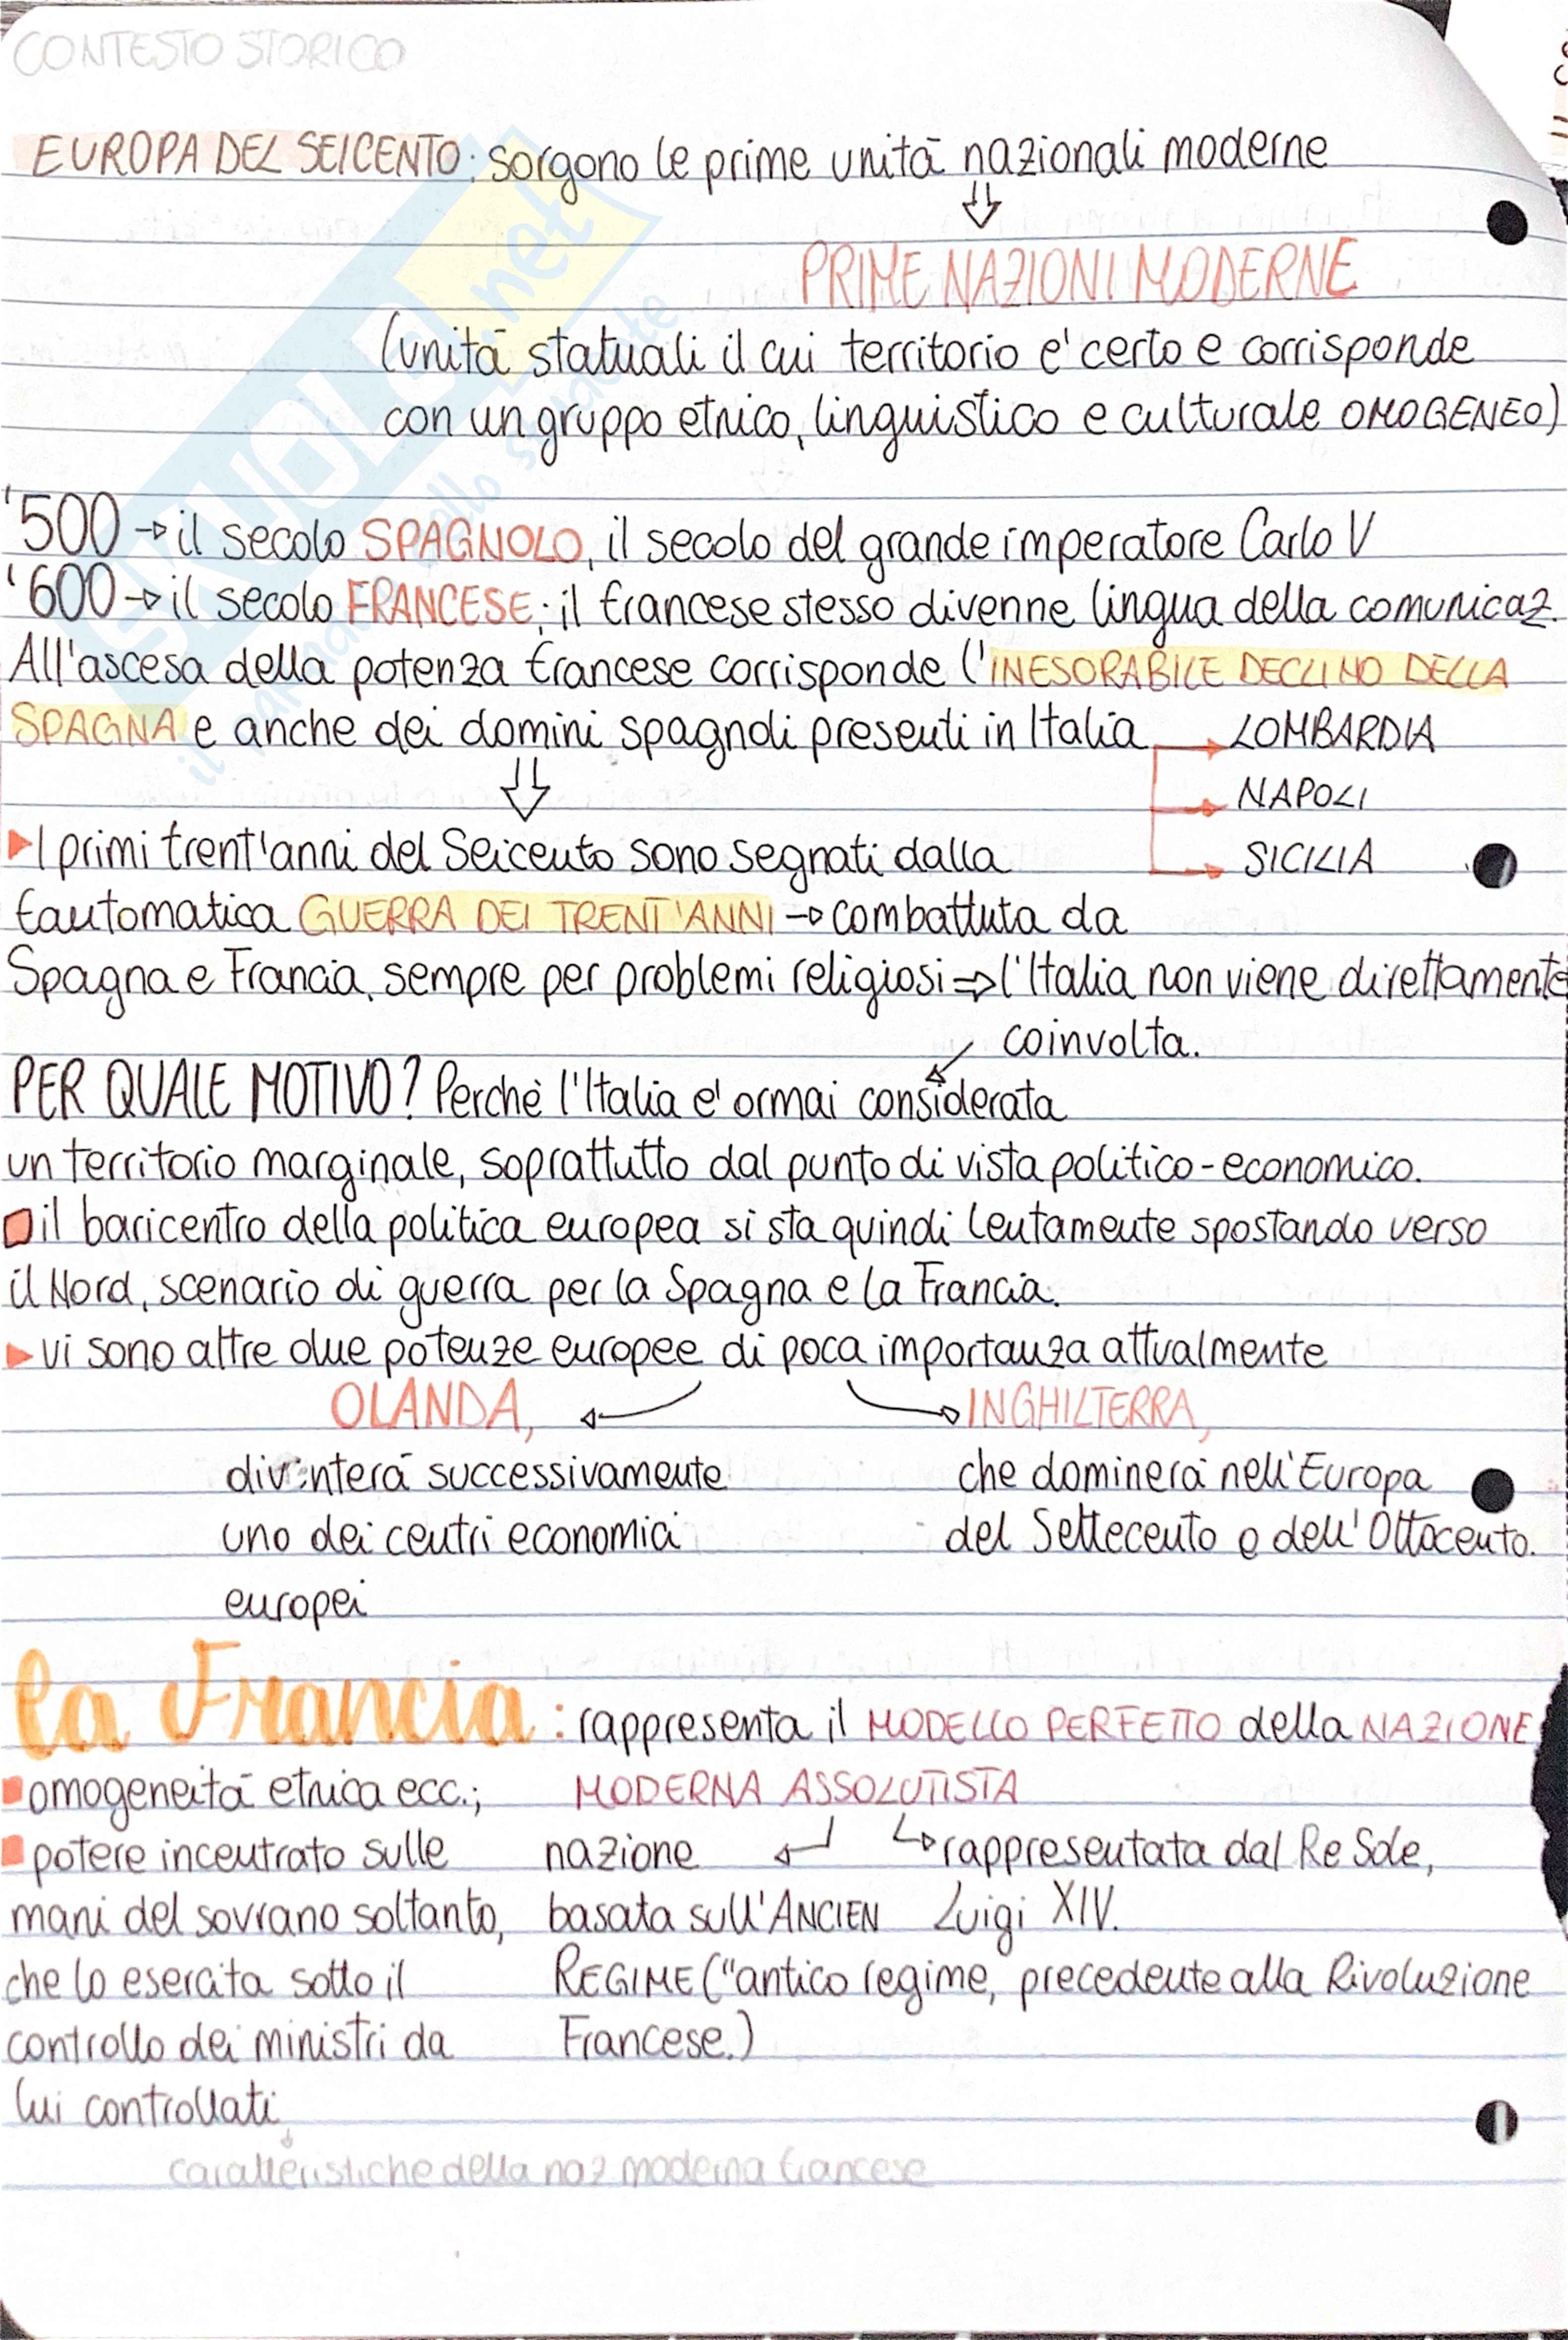 CONTESTO STORICO
EUROPA DEL SEICENTO: sorgono le prime unità nazionali moderne
⇓
PRIME NAZIONI MODERNE
(unità statuali il cui territorio e' certo e corrisponde
con un gruppo etnico, linguistico e culturale OMOGENEO)
'500 → il secolo SPAGNOLO, il secolo del grande imperatore Carlo V
'600 → il secolo FRANCESE; il francese stesso divenne lingua della comunicaz.
All'ascesa della potenza francese corrisponde l'INESORABILE DECLINO DELLA
SPAGNA e anche dei domini spagnoli presenti in Italia → LOMBARDIA
→ NAPOLI
→ SICILIA
⇓
▶ I primi trent'anni del Seicento sono segnati dalla
fautomatica GUERRA DEI TRENT'ANNI → combattuta da
Spagna e Francia, sempre per problemi religiosi ⇒ l'Italia non viene direttamente
coinvolta.
PER QUALE MOTIVO? Perchè l'Italia e' ormai considerata
un territorio marginale, soprattutto dal punto di vista politico-economico.
il baricentro della politica europea si sta quindi lentamente spostando verso
il Nord, scenario di guerra per la Spagna e la Francia.
▶ vi sono altre due potenze europee di poca importanza attualmente
OLANDA, ← → INGHILTERRA,
diventerà successivamente che dominerà nell'Europa
uno dei centri economici del Settecento e dell'Ottocento.
europei
la Francia: rappresenta il MODELLO PERFETTO della NAZIONE
omogeneità etnica ecc.; MODERNA ASSOLUTISTA
potere incentrato sulle nazione ↲ ↳ rappresentata dal Re Sole,
mani del sovrano soltanto, basata sull'ANCIEN Luigi XIV.
che lo esercita sotto il REGIME ("antico regime, precedente alla Rivoluzione
controllo dei ministri da Francese.)
lui controllati
↓
caratteristiche della naz moderna francese
SKUOLA.net